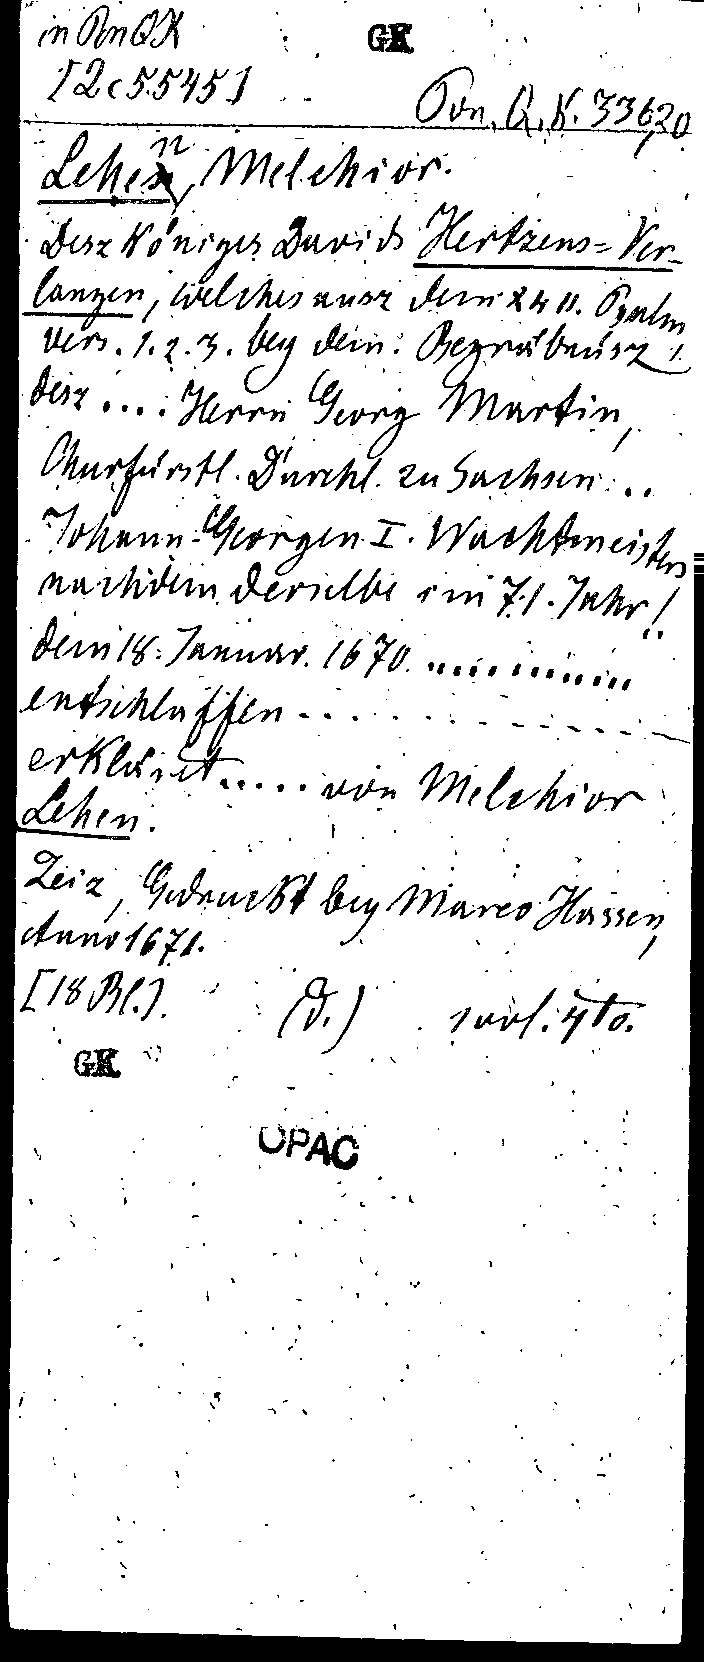 in Pon QK
GK
[2 c 5545]
Pon. Q. K. 336,20
Lehen, Melchior.
Desz Königes Davids Hertzens=Ver-
langen, welches ausz dem X4 II. Psalm
vers. 1. 2. 3. bey dem: Begräbnüsz
desz .... Herrn Georg Martin,
Churfürstl. Durchl. zu Sachsen ..
Johann-Georgen I. Wachtmeisters
nachdem derselbe im 71. Jahr!
dem 18. Januar. 1670. ............
entschlaffen - - - - - - - - - - -
erkläret ..... von Melchior
Lehen.
Zeiz, Gedruckt bey Marco Hassen,
Anno 1671.
[18 Bl.]. (d.) 4to.
GK
OPAC